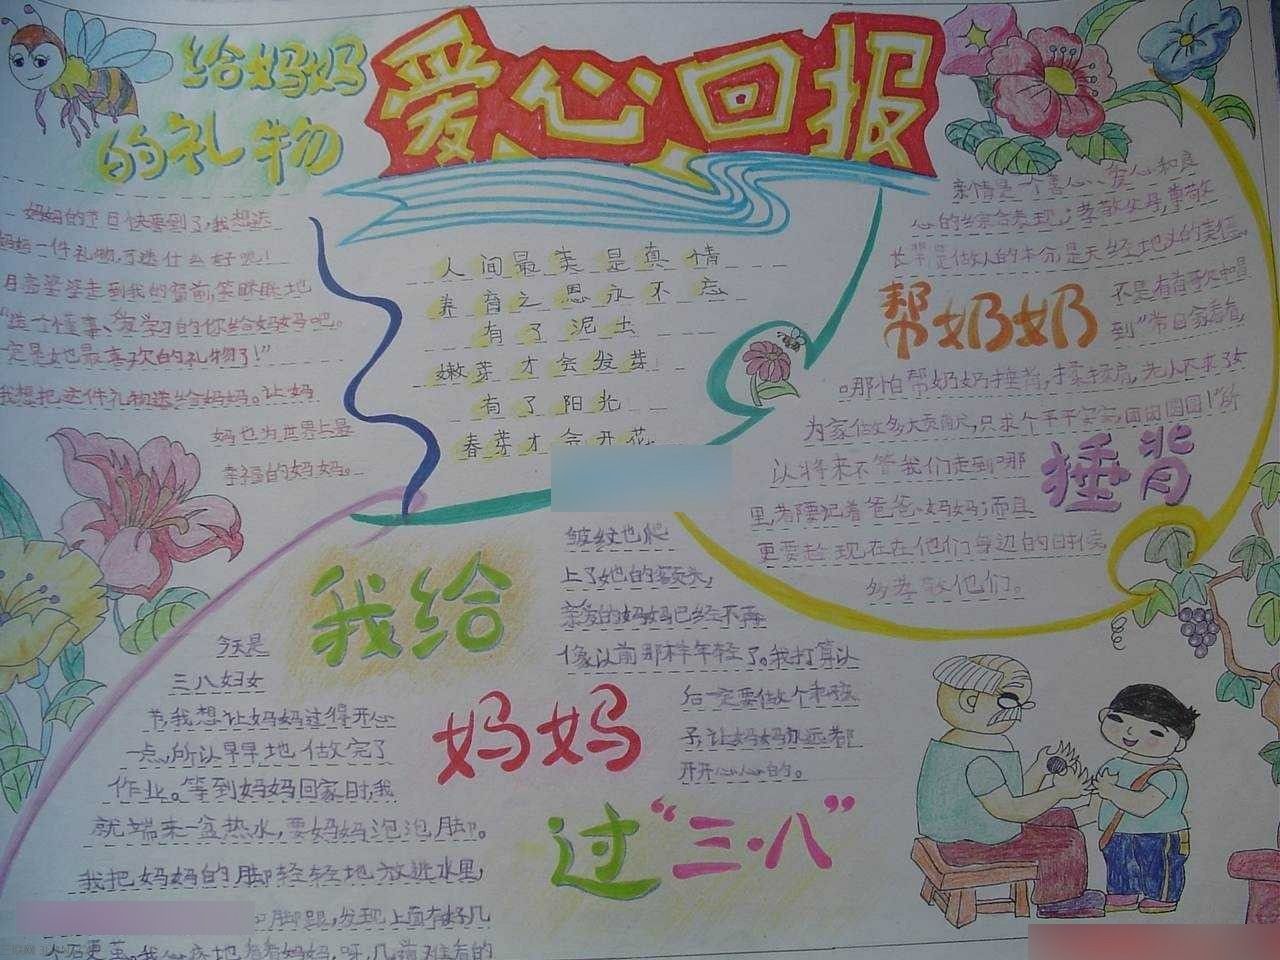 爱心回报
给妈妈
的礼物
妈妈的节日快要到了,我想送
妈妈一件礼物,可送什么好呢!
月亮婆婆走到我的窗前,笑眯眯地
一定是她最喜欢的礼物了!”
我想把这件礼物送给妈妈。让妈
妈也为世界上最
幸福的妈妈。
人间最美是真情
养育之恩永不忘
有了泥土
嫩芽才会发芽
有了阳光
春芽才会开花
亲情是一个善心、爱心和良
心的综合表现;孝敬父母,尊敬
长辈是做人的本分,是天经地义的美德。
帮奶奶
捶背
不是有首歌中唱
到“常回家看看,
哪怕帮奶奶捶背,揉揉肩,老人不求子女
为家做多大贡献,只求个平平安安,团团圆圆!”所
以将来不管我们走到哪
里,都要记着爸爸、妈妈;而且
更要趁现在在他们身边的时候,
多孝敬他们。
我给
妈妈
过“三·八”
今天是
三八妇女
节,我想让妈妈过得开心
一点,所以早早地做完了
作业。等到妈妈回家时,我
就端来一盆热水,要妈妈泡泡脚。
我把妈妈的脚轻轻地放进水里,
和脚跟,发现上面有好几
个石更茧。我心疼地看着妈妈,呀,几道难看的
皱纹也爬
上了她的额头,
亲爱的妈妈已经不再
像以前那样年轻了。我打算以
后一定要做个乖孩
子,让妈妈永远都
开开心心的。